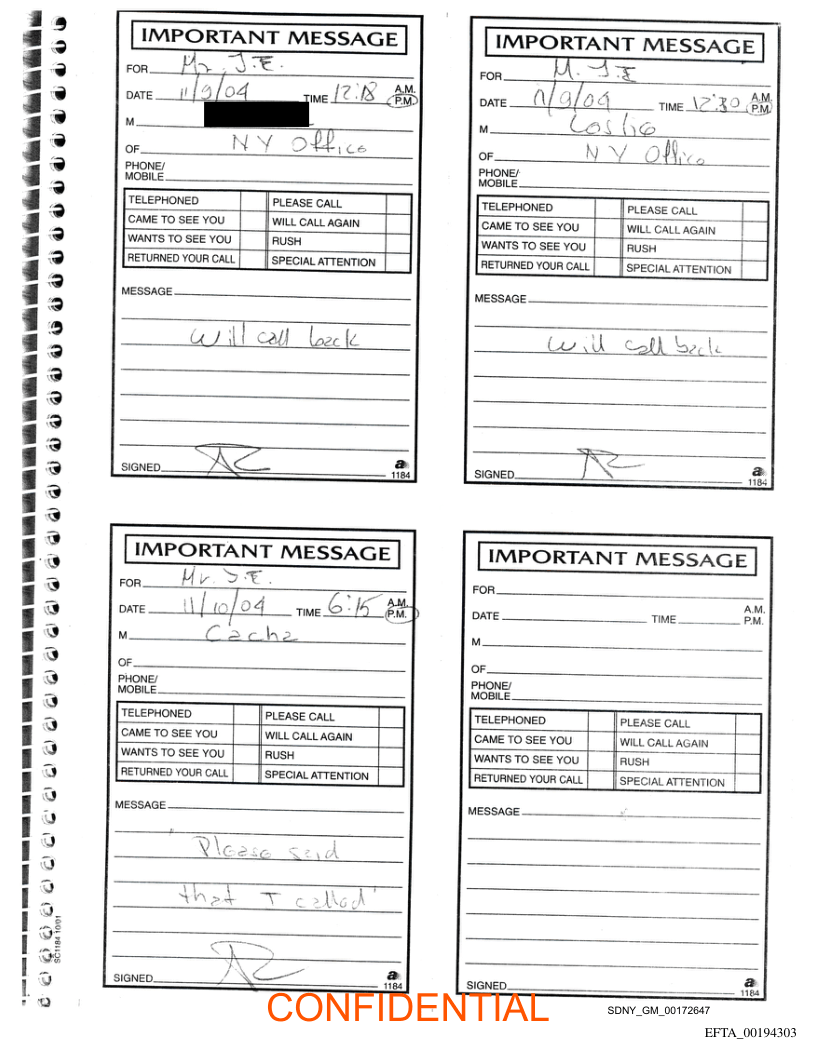 IMPORTANT MESSAGE
FOR Mr. J.E.
DATE 11/9/04 TIME 12:18 A.M. P.M.
M
OF NY Office
PHONE/
MOBILE
TELEPHONED PLEASE CALL
CAME TO SEE YOU WILL CALL AGAIN
WANTS TO SEE YOU RUSH
RETURNED YOUR CALL SPECIAL ATTENTION
MESSAGE
will call back
SIGNED
a
1184
IMPORTANT MESSAGE
FOR M. J.E
DATE 11/9/04 TIME 12:30 A.M. P.M.
M
OF NY Office
PHONE/
MOBILE
TELEPHONED PLEASE CALL
CAME TO SEE YOU WILL CALL AGAIN
WANTS TO SEE YOU RUSH
RETURNED YOUR CALL SPECIAL ATTENTION
MESSAGE
will call back
SIGNED
a
1184
IMPORTANT MESSAGE
FOR Mr. J.E.
DATE 11/10/04 TIME 6:15 A.M. P.M.
M Cacha
OF
PHONE/
MOBILE
TELEPHONED PLEASE CALL
CAME TO SEE YOU WILL CALL AGAIN
WANTS TO SEE YOU RUSH
RETURNED YOUR CALL SPECIAL ATTENTION
MESSAGE
"Please said
that I called"
SIGNED
a
1184
IMPORTANT MESSAGE
FOR
DATE TIME A.M. P.M.
M
OF
PHONE/
MOBILE
TELEPHONED PLEASE CALL
CAME TO SEE YOU WILL CALL AGAIN
WANTS TO SEE YOU RUSH
RETURNED YOUR CALL SPECIAL ATTENTION
MESSAGE
SIGNED
a
1184
SC1184 10/01
CONFIDENTIAL
SDNY_GM_00172647
EFTA_00194303